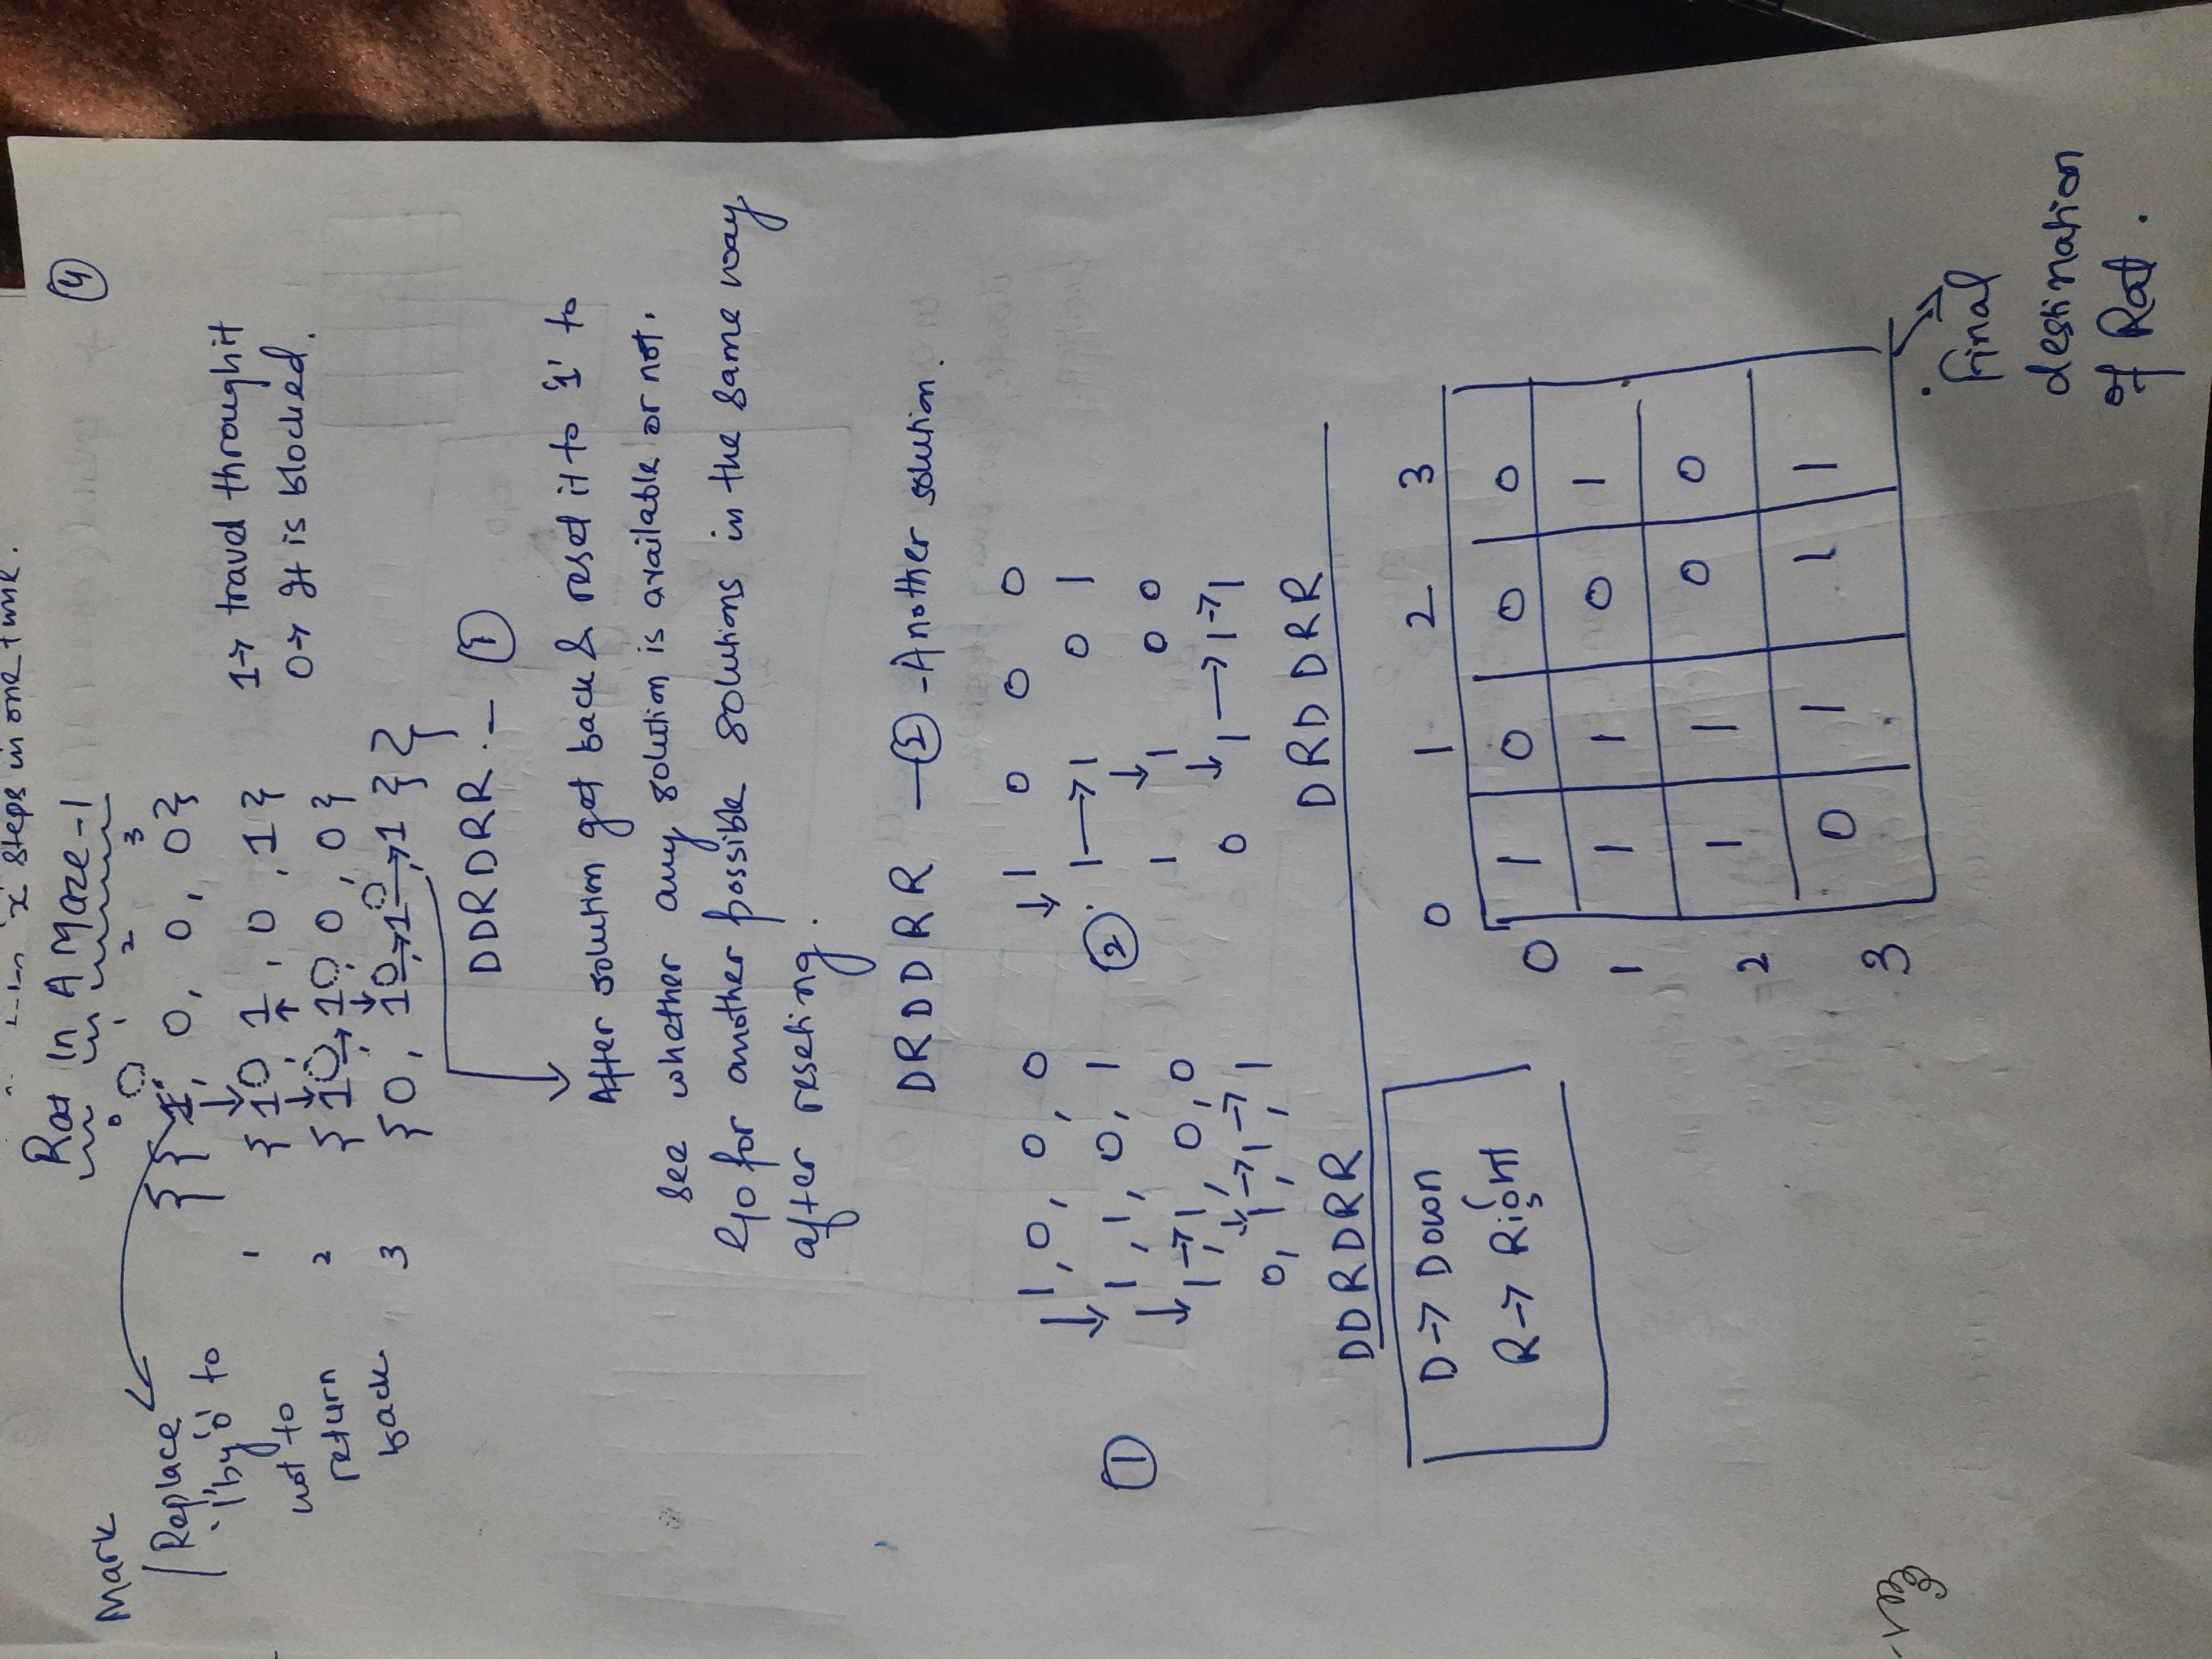 'x' steps in one time.
Rat In A Maze-1
4
Mark
Replace
'1' by '0' to
not to
return
back.
0 1 2 3
{ { 1 0, 0, 0, 0}
1 { 1 0, 1, 0, 1}
2 { 1 0, → 1 0, 0, 0}
3 { 0, 1 0 →, 1 0 →, 1 } }
1→ travel through it
0→ It is blocked.
DDRDRR. — 1
After solution get back & reset it to '1' to
see whether any solution is available or not.
Go for another possible solutions in the same way
after reseting.
DRDDRR — 2 - Another solution.
1
↓ 1, 0, 0, 0
↓ 1, 1, 0, 1
↓ 1, → 1, 0, 0
0, ↓ 1, → 1, → 1
DDRDRR
2
↓ 1 0 0 0
1 → 1 0 1
↓
1 1 0 0
0 ↓ 1 → 1 → 1
DRDDRR
D → Down
R → Right
0 1 2 3
0 1 0 0 0
1 1 1 0 1
2 1 1 0 0
3 0 1 1 1
Final
destination
of Rat.